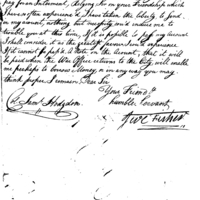 pay for an Interment, relying Sir on your Friendship which
I have often experience'd I have taken the liberty to send
my account, nothing but necessity would induce me to
trouble you at this time, If it is payable to pay my account
I shall consider it as the greatest favour I ever experience
If it cannot be paid a Note on the account, that it will
be paid when the War Office returns to the City, will enable
me perhaps to borrow Money, or in any way you may
think proper I remain Dear Sir
Your Friend &
humble Servant,
Col. Sam. Hodgdon.